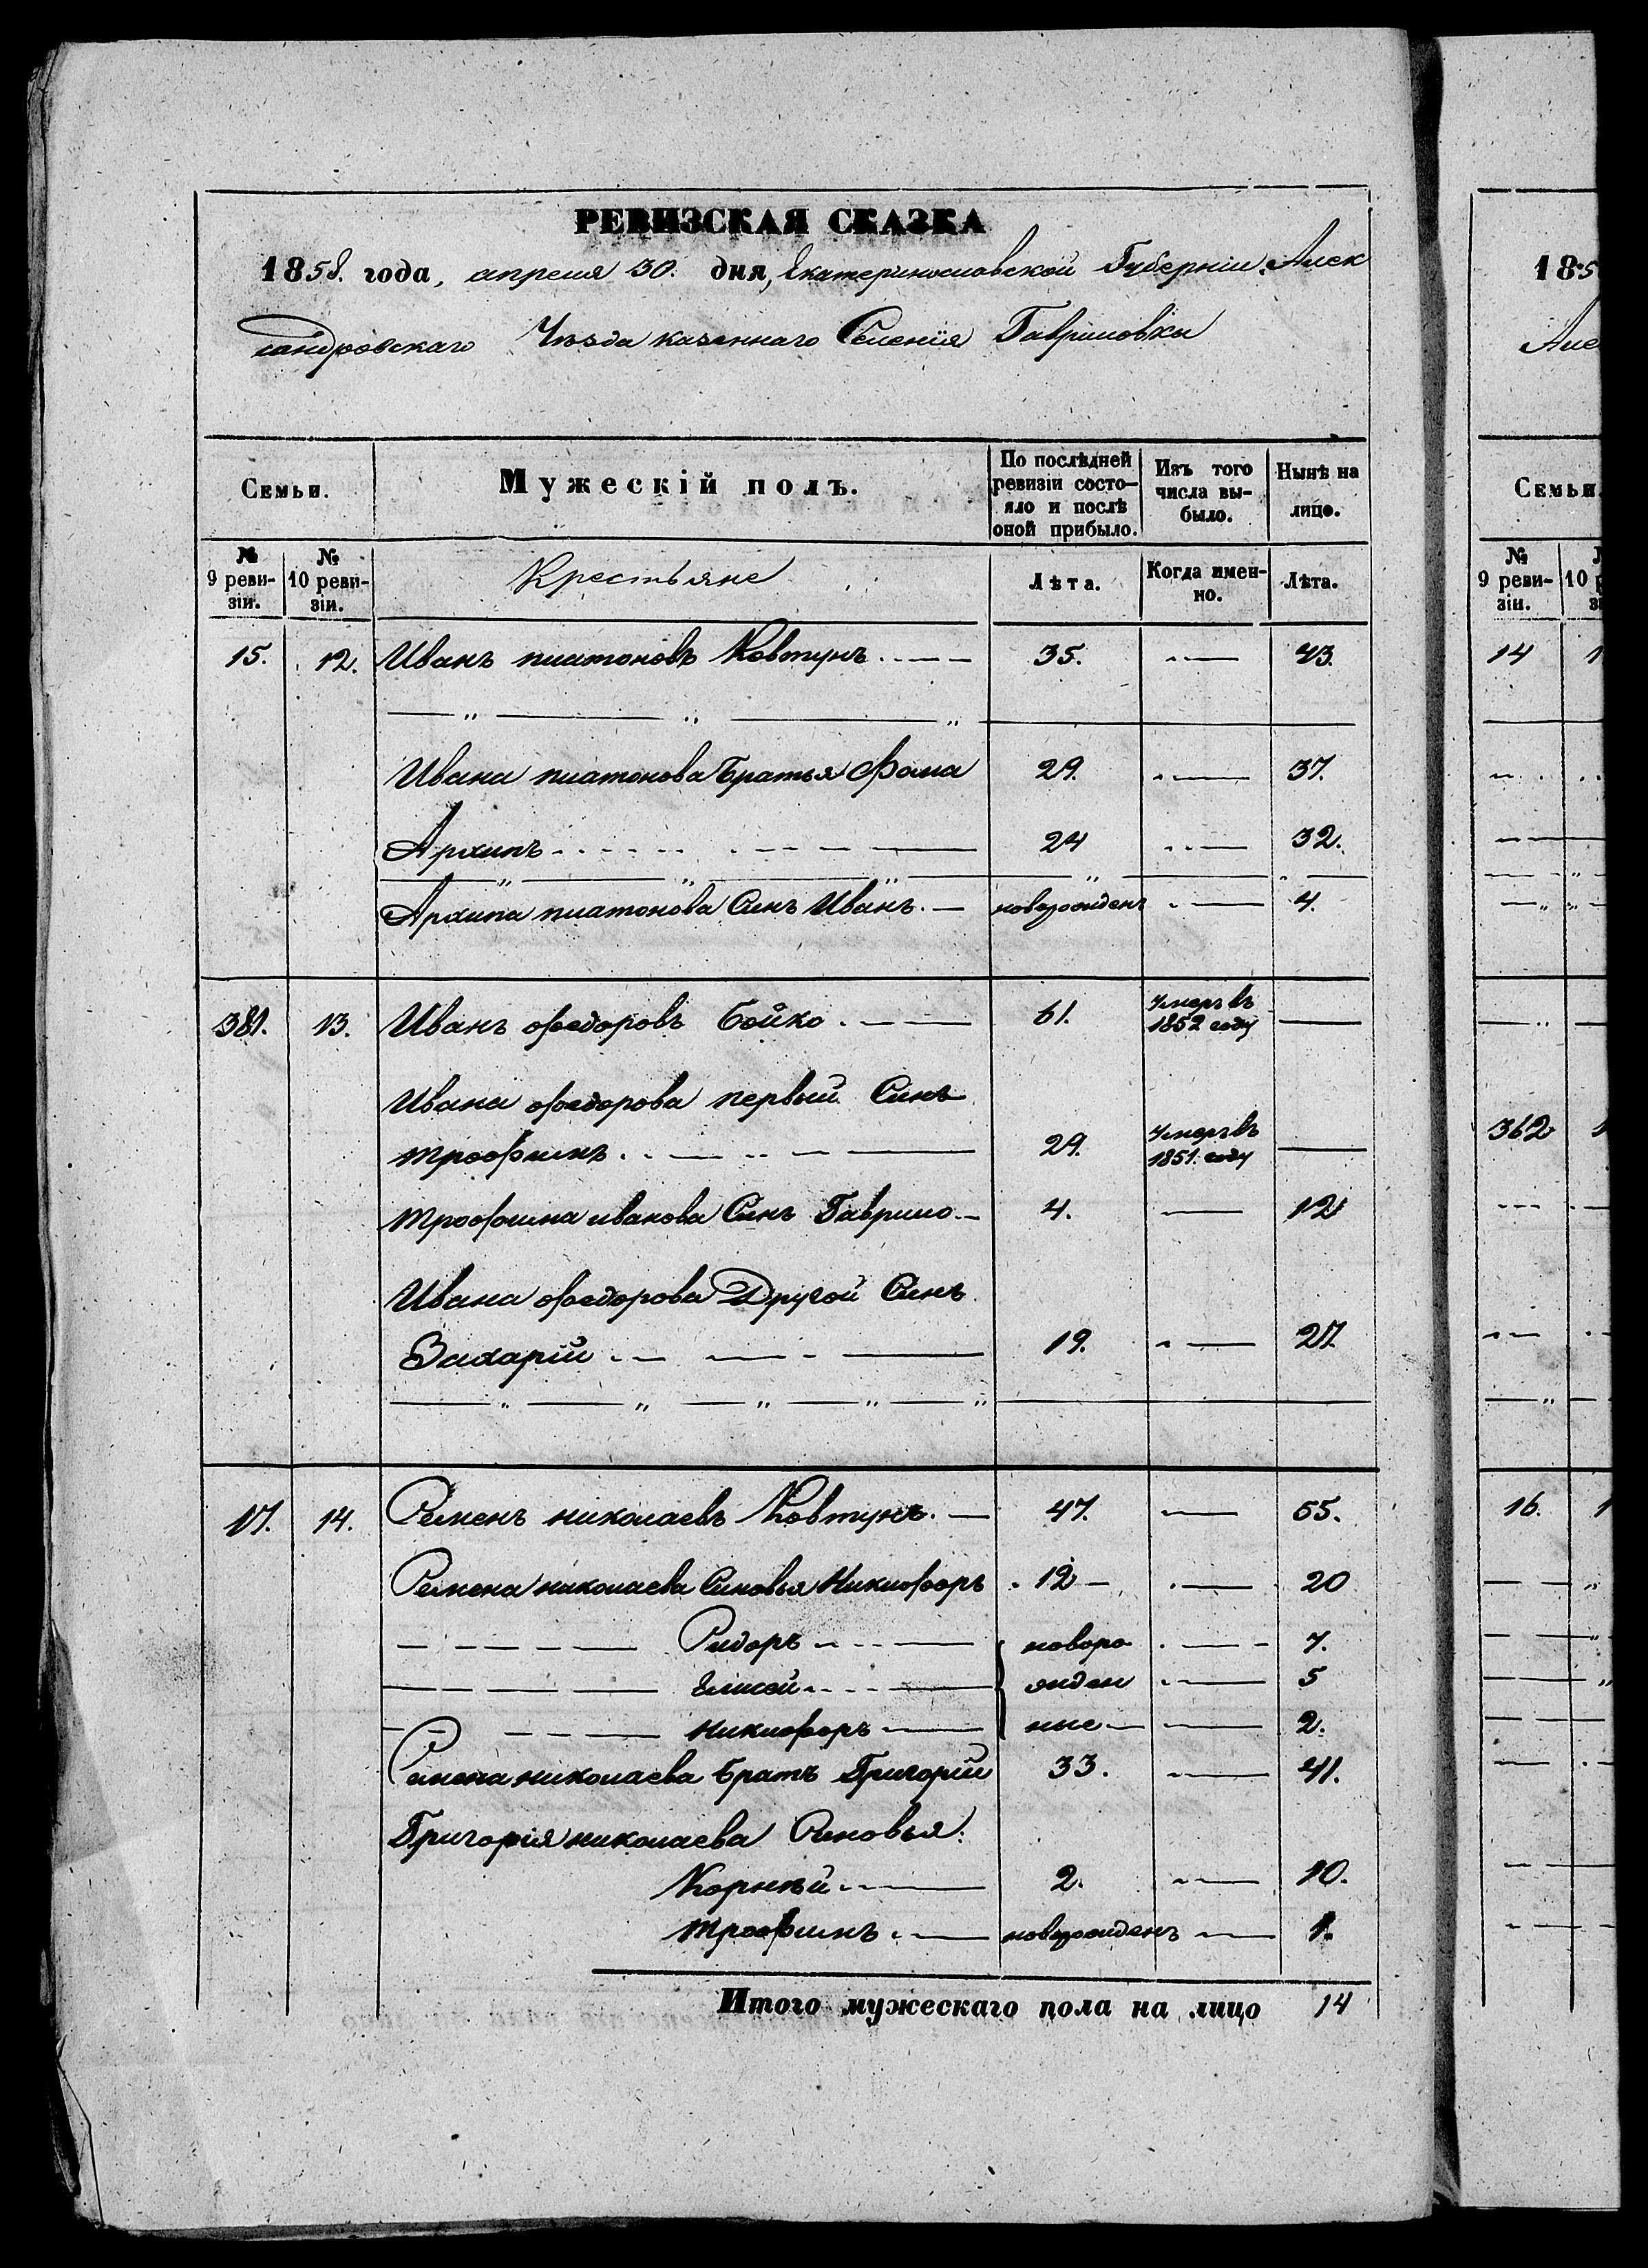 РЕВИЗСКАЯ СКАЗКА
1858. года, апреля 30. дня, Екатеринославской Губерніи. Алек
сандровскаго Уѣзда казеннаго Селенія Гавриловки
Семьи.
Мужескій полъ.
По послѣдней ревизіи состояло и послѣ оной прибыло.
Изъ того числа выбыло.
Нынѣ на лицо.
№ 9 ревизіи.
№ 10 ревизіи.
Крестьяне
Лѣта.
Когда именно.
Лѣта.
15. 12. Иванъ платоновъ Ковтунъ 35. 43.
Ивана платонова братья Фома 29. 37.
Архипъ 24 32.
Архипа платонова Синъ Иванъ новорожденъ 4.
381. 13. Иванъ федоровъ Бойко 61. Умеръ въ 1852 году
Ивана федорова первый Синъ
трофимъ 29. Умеръ въ 1851. году
трофима иванова Синъ Гаврило 4. 12
Ивана федорова Другой Синъ
Захарій 19. 27.
17. 14. Семенъ николаевъ Ковтунъ 47. 55.
Семена николаева Синовья Никифоръ 12 20
Сидоръ новоро 7.
Елисей жден 5
никифоръ ные 2.
Семена николаева братъ Григорій 33. 41.
Григорія николаева Синовья:
Корнѣй 2. 10.
трофимъ новорожденъ 1.
Итого мужескаго пола на лицо 14
185
Але
Семьи.
№ 9 ревизіи.
14
362
16.